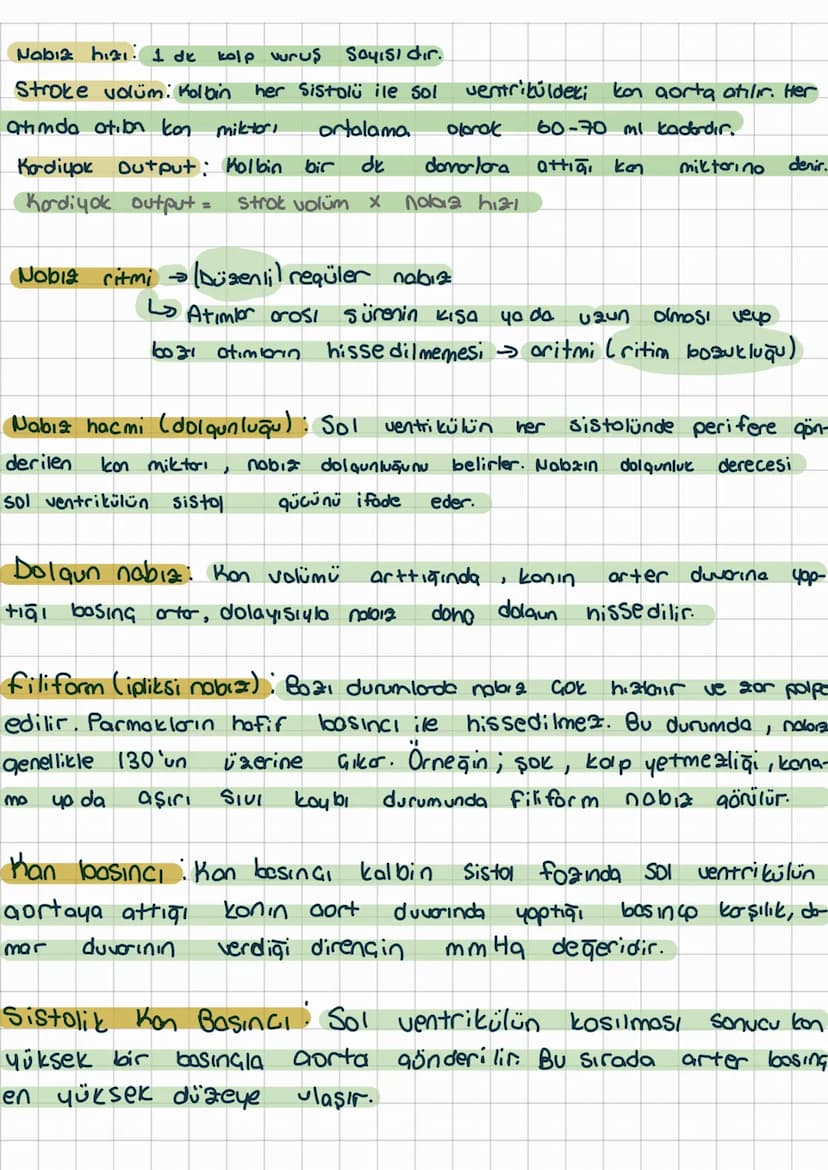 Nabız hızı: 1 dk kalp vuruş sayısıdır.
Stroke volüm: Kalbin her sistolü ile sol ventriküldeki kan aorta atılır. Her
atımda atılan kan miktarı ortalama olarak 60-70 ml kadardır.
Kardiyak output: Kalbin bir dk damarlara attığı kan miktarına denir.
Kardiyak output = strok volüm x nabız hızı
Nabız ritmi → (Düzenli) regüler nabız
↳ Atımlar arası sürenin kısa ya da uzun olması veya
bazı atımların hissedilmemesi → aritmi (ritim bozukluğu)
Nabız hacmi (dolgunluğu): Sol ventrikülün her sistolünde perifere gön-
derilen kan miktarı, nabız dolgunluğunu belirler. Nabzın dolgunluk derecesi
sol ventrikülün sistol gücünü ifade eder.
Dolgun nabız: Kan volümü arttığında, kanın arter duvarına yap-
tığı basınç artar, dolayısıyla nabız daha dolgun hissedilir.
filiform (ipliksi nabız): Bazı durumlarda nabız çok hızlanır ve zor palpe
edilir. Parmakların hafif basıncı ile hissedilmez. Bu durumda, nabız
genellikle 130'un üzerine çıkar. Örneğin; şok, kalp yetmezliği, kana-
ma ya da aşırı sıvı kaybı durumunda filiform nabız görülür.
Kan basıncı: Kan basıncı kalbin sistol fazında sol ventrikülün
aortaya attığı kanın aort duvarında yaptığı basınca karşılık, da-
mar duvarının verdiği direncin mmHg değeridir.
Sistolik Kan Basıncı: Sol ventrikülün kasılması sonucu kan
yüksek bir basınçla aorta gönderilir. Bu sırada arter basınç
en yüksek düzeye ulaşır.